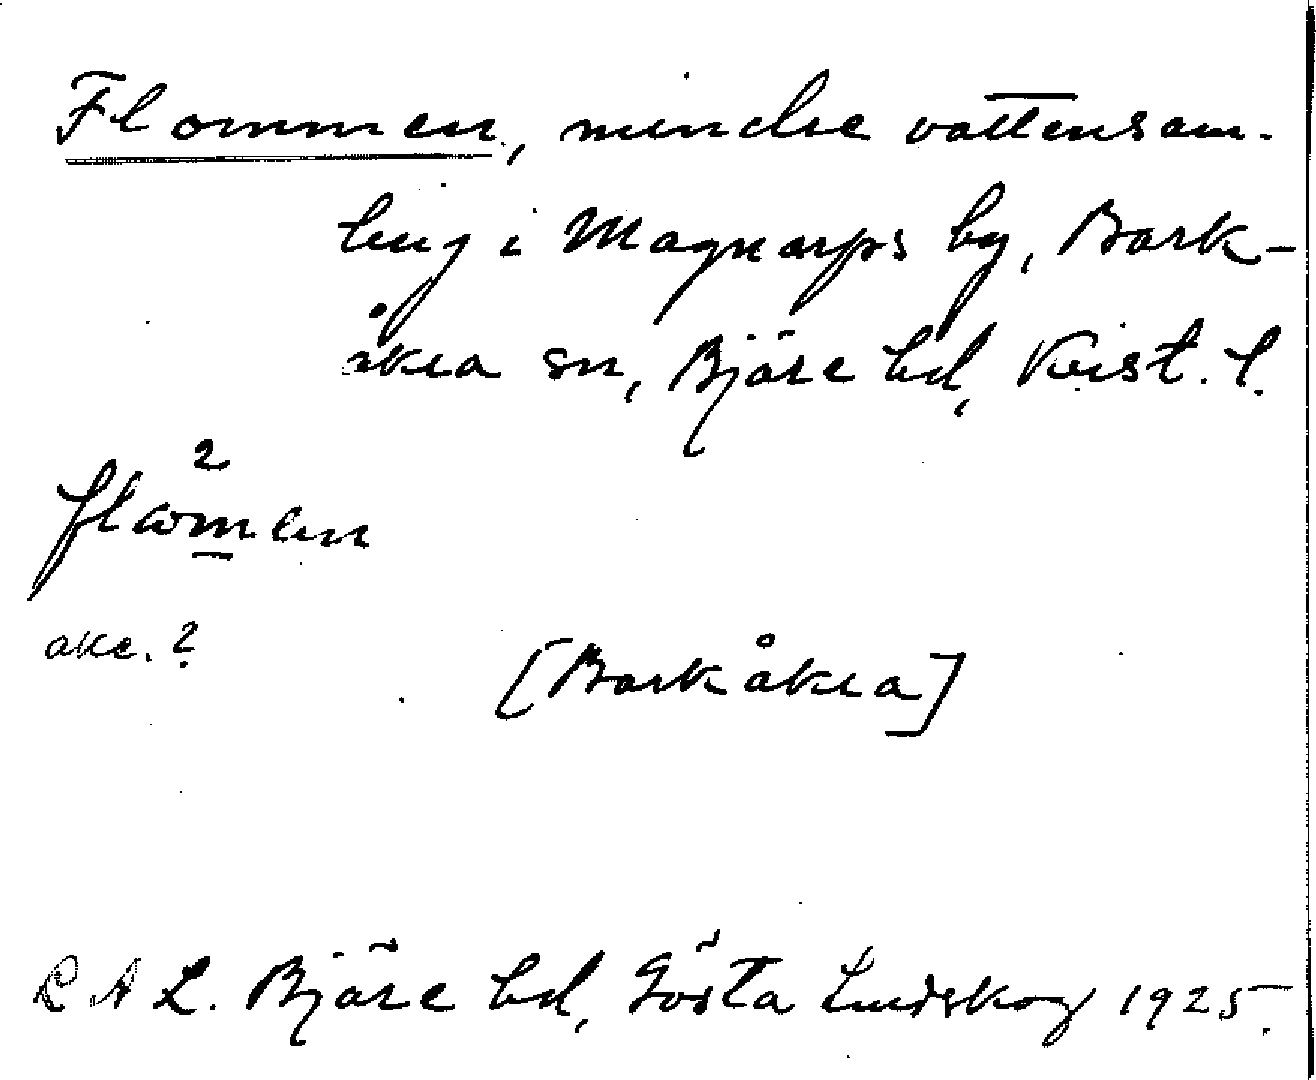 Flommen, mindre vattensam-
ling i Magnarps by, Bark-
åkra sn, Bjäre hd, Krist. l.
2
flωmen
akc.?
[Barkåkra]
L A L. Bjäre hd, Gösta Lindskog 1925.